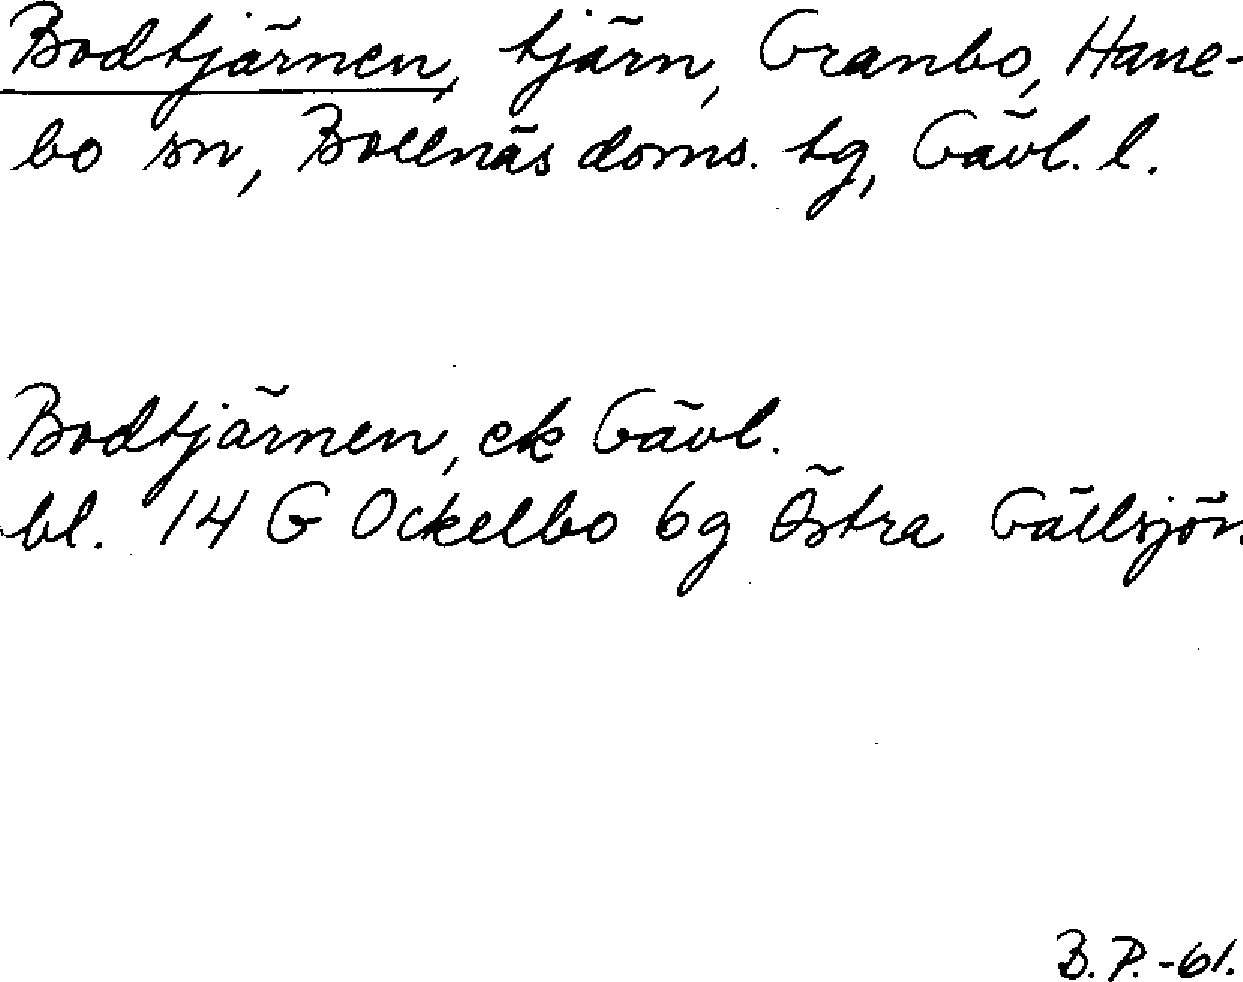 Bodtjärnen, tjärn, Granbo, Hane-
bo sn, Bollnäs doms. tg, Gävl. l.
Bodtjärnen, ek Gävl.
bl. 14 G Ockelbo 6g Östra Gällsjön.
B. P. -61.